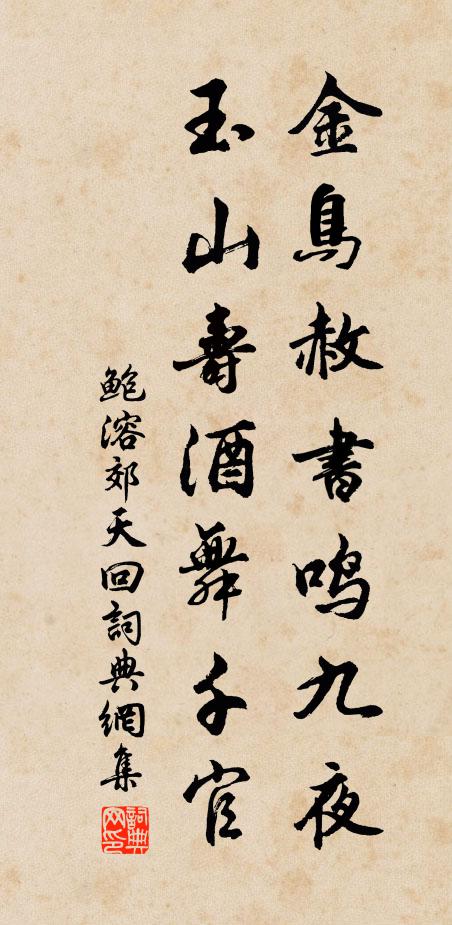 金鳥赦書鳴九夜
玉山壽酒舞千官
鮑溶郊天回詞典網集
詞典
网印